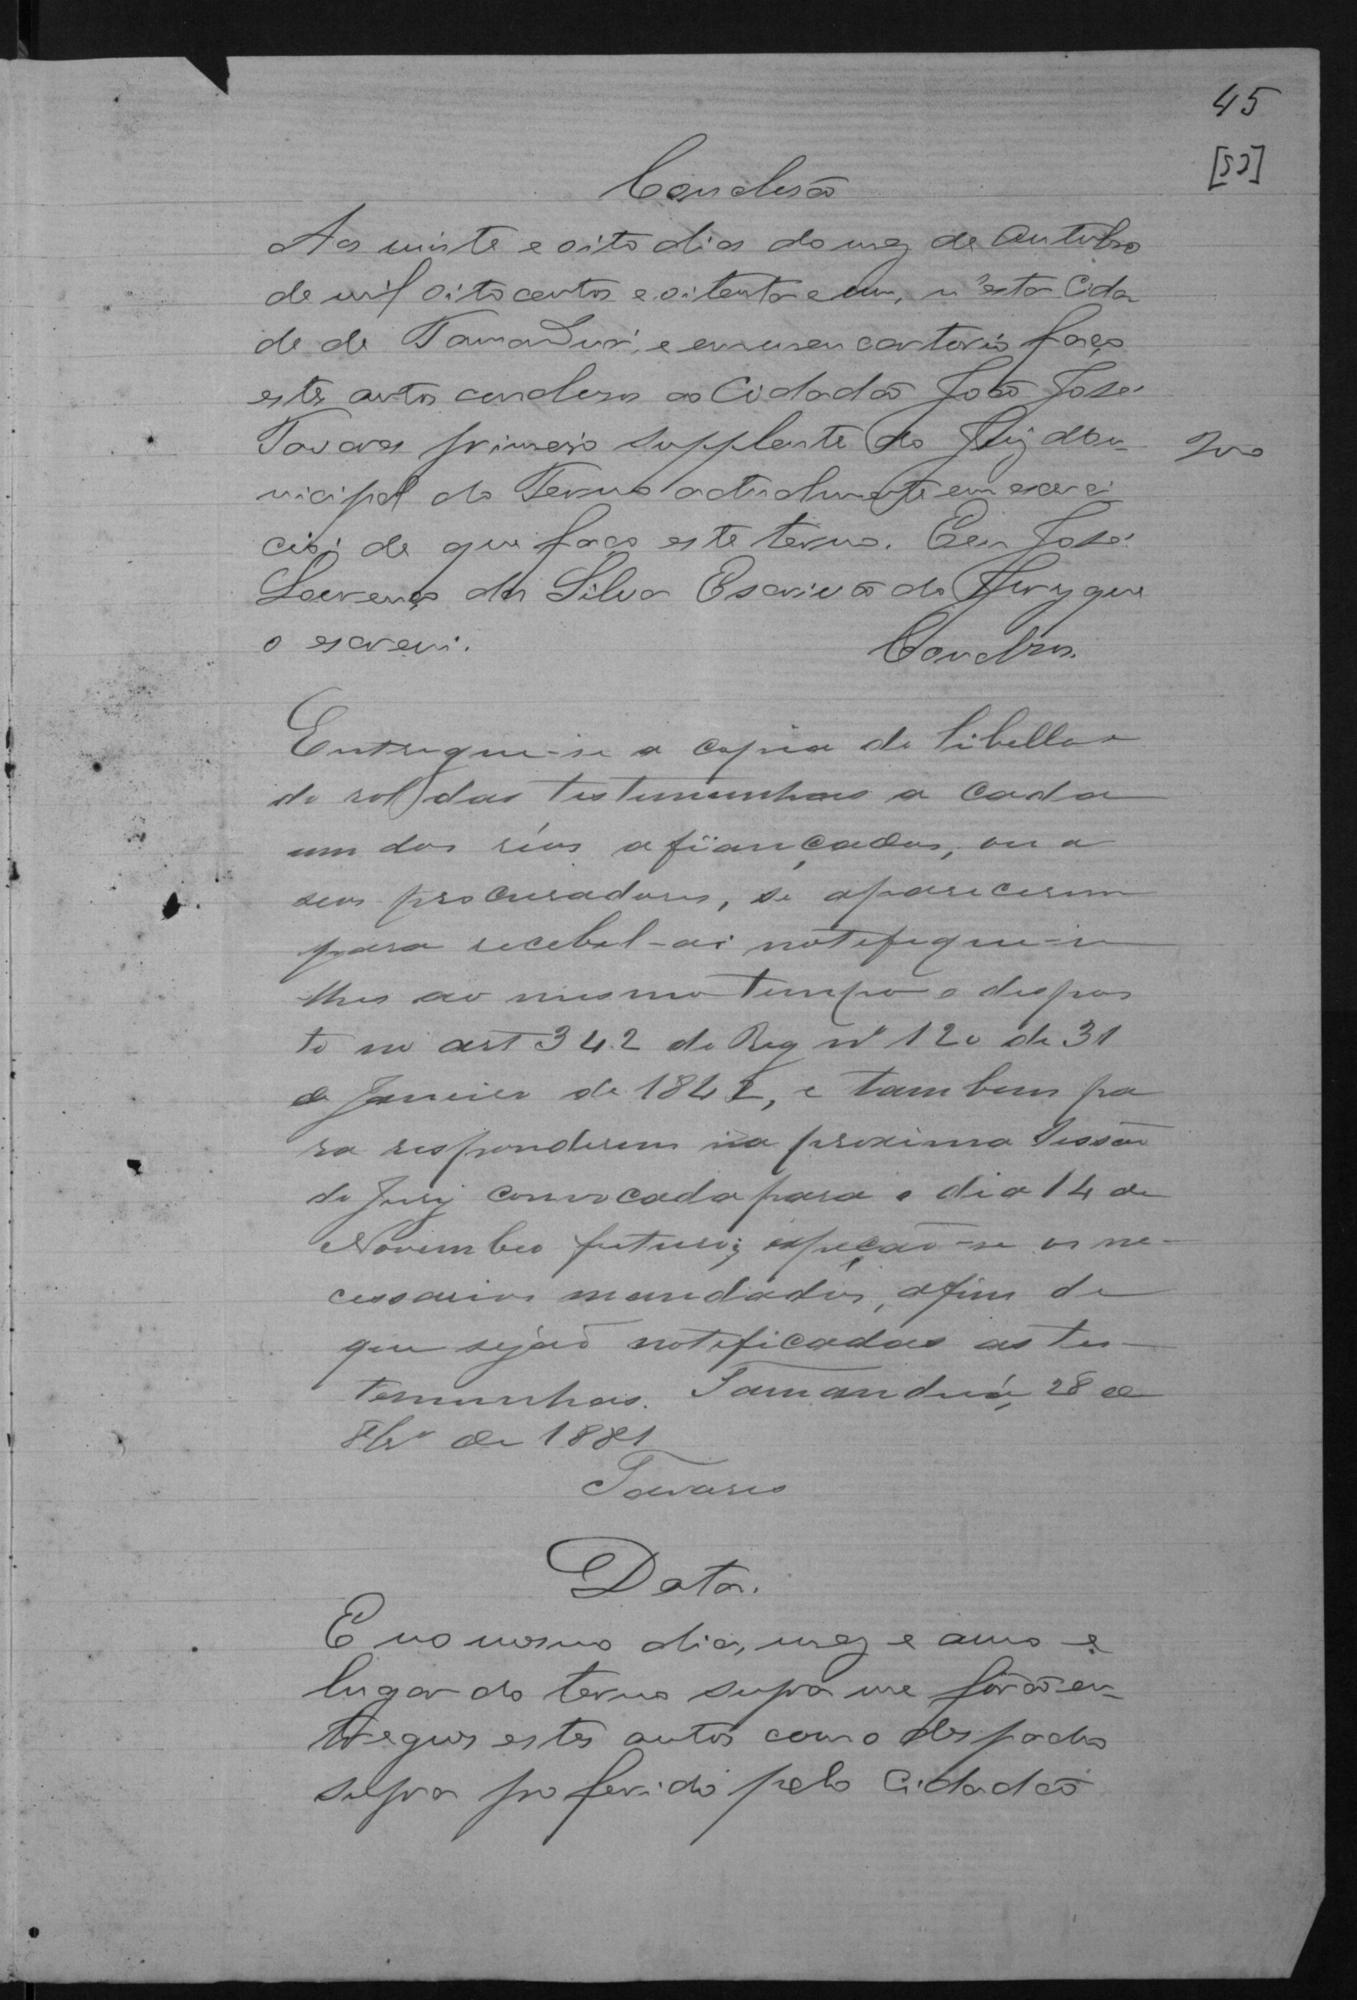 45
[53]
Conclusão
Aos vinte e oito dias do mez de Outubro
de mil oito centos e oitenta e um, n'esta Cida
de de Tamanduá, e em meu cartorio faço
estes autos conclusos ao Cidadão João José
Tavares primeiro supplente do Juiz Mu-
nicipal do Termo actualmente em exerci
cio; de que faço este termo. Eu José
Lourenço da Silva Escrivão do Jury que
o escrevi.
Conclusos.
Entregue-se a copia do libello e
do rol das testemunhas a cada
um dos réos afiançados, ou a
seus procuradores, se aparecerem
para recebel-as; notifique-se
lhes ao mesmo tempo o dispos
to no art 342 do Reg nº 120 de 31
de Janeiro de 1842, e tambem pa
ra responderem na proxima Sessão
do Jury convocada para o dia 14 de
Novembro futuro; expeção-se os ne-
cessarios mandados, afim de
que sejão notificadas as tes-
temunhas. Tamanduá, 28 de
8brº de 1881
Tavares
Data.
E no mesmo dia, mez e anno e
lugar do termo supra me forão en-
tregues estes autos com o despacho
supra proferido pelo Cidadão